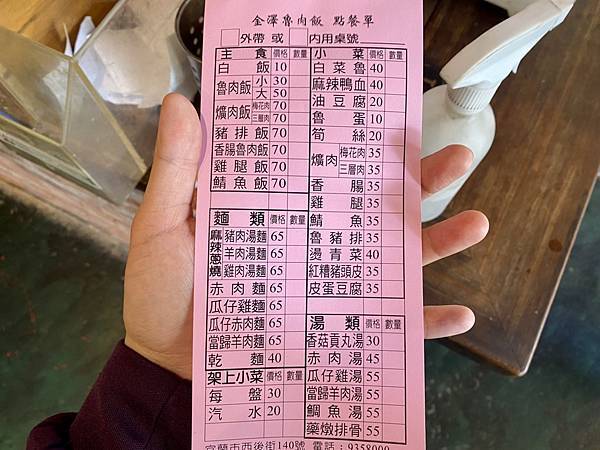 金澤魯肉飯 點餐單
外帶 或 內用桌號
主食 價格 數量
白飯 10
魯肉飯 小 30
大 50
爌肉飯 梅花肉 70
三層肉 70
豬排飯 70
香腸魯肉飯 70
雞腿飯 70
鯖魚飯 70
麵類 價格 數量
麻辣蔥燒
豬肉湯麵 65
羊肉湯麵 65
雞肉湯麵 65
赤肉麵 65
瓜仔雞麵 65
瓜仔赤肉麵 65
當歸羊肉麵 65
乾麵 40
架上小菜 價格 數量
每盤 30
汽水 20
小菜 價格 數量
白菜魯 40
麻辣鴨血 40
油豆腐 20
魯蛋 10
筍絲 20
爌肉 梅花肉 35
三層肉 35
香腸 35
雞腿 35
鯖魚 35
魯豬排 35
燙青菜 40
紅糟豬頭皮 35
皮蛋豆腐 35
湯類 價格 數量
香菇貢丸湯 30
赤肉湯 45
瓜仔雞湯 55
當歸羊肉湯 55
鯛魚湯 55
藥燉排骨 55
宜蘭市西後街140號 電話：9358000